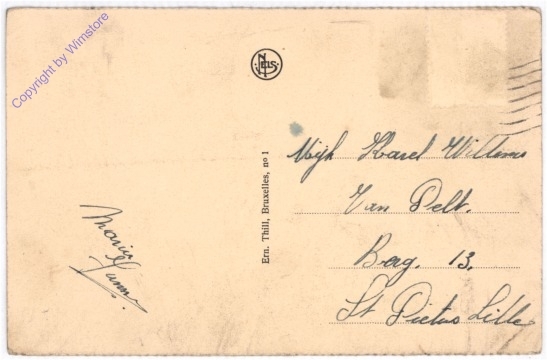 Copyright by Wimstore
NELS
Ern. Thill, Bruxelles, nº 1
Maria
Mejh Karel Willems
Van Pelt.
Beg. 13.
St Pieters Lille